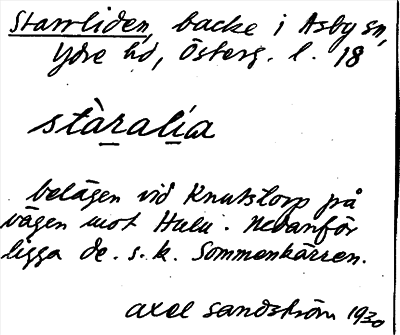 Starrliden, backe i Asby sn,
Ydre hd, Österg. l. 18
stàralía
belägen vid Knutstorp på
vägen mot Hulu. Nedanför
ligga de. s. k. Sommenkärren.
Axel Sandström 1930